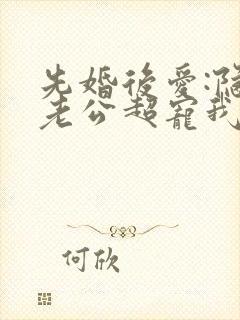 先婚後愛:隔
老公超寵我
何欣